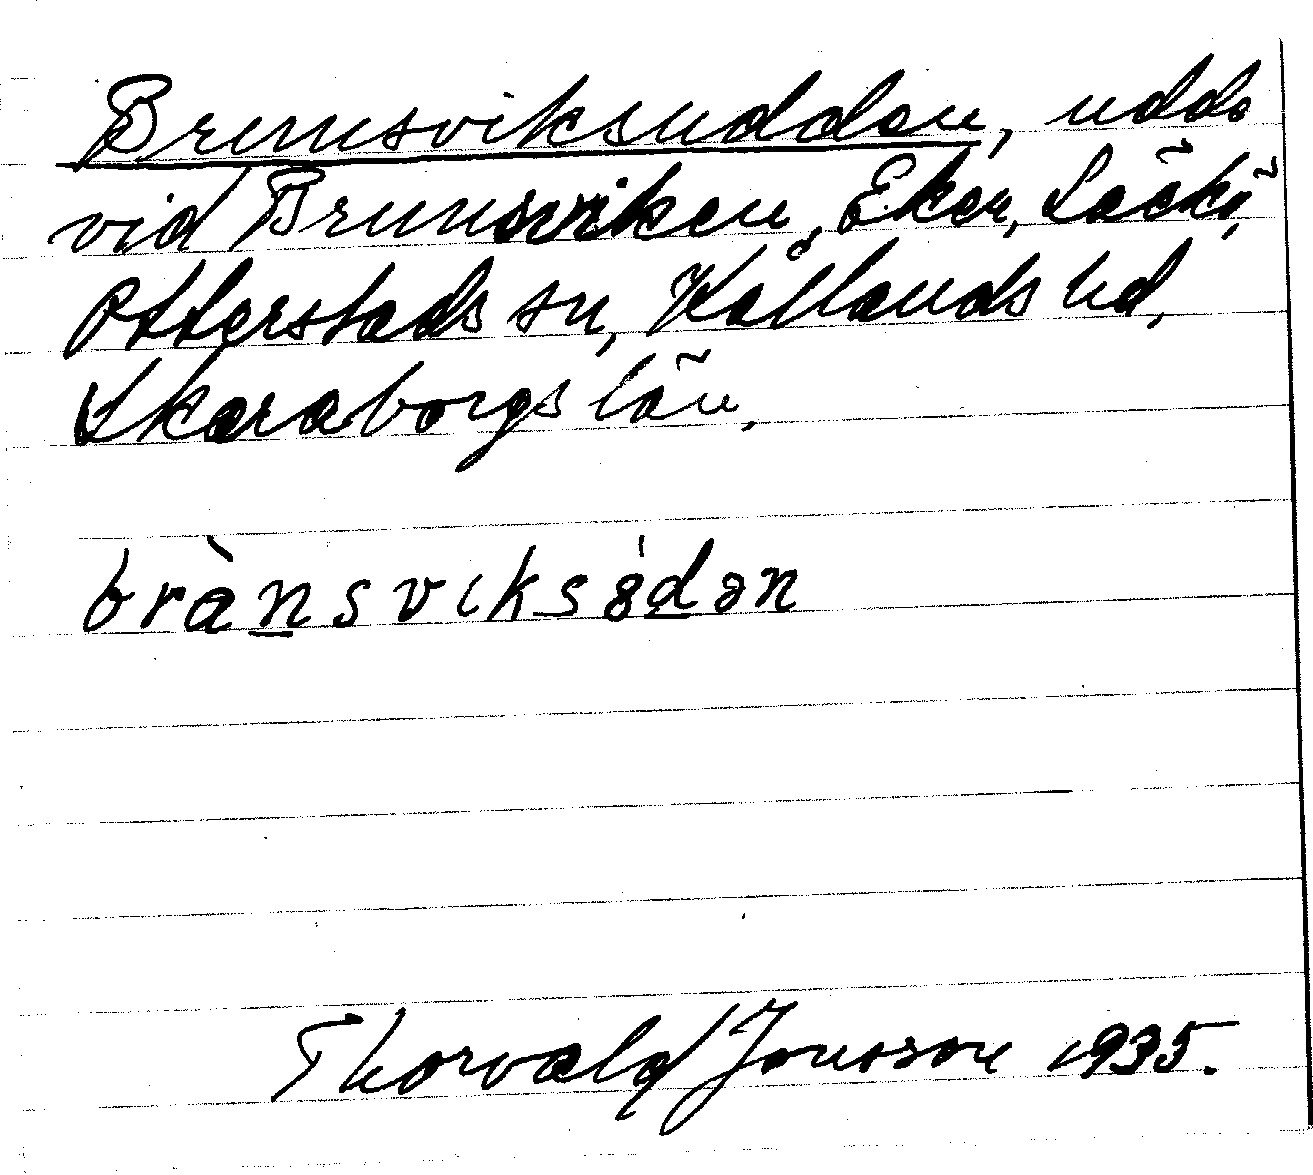 Brunsviksudden, udde
vid Brunsviken, Eken, Läckö,
Otterstads sn, Kållands hd,
Skaraborgs län.
brànsviksȯ́dən
Thorvald Jonsson 1935.